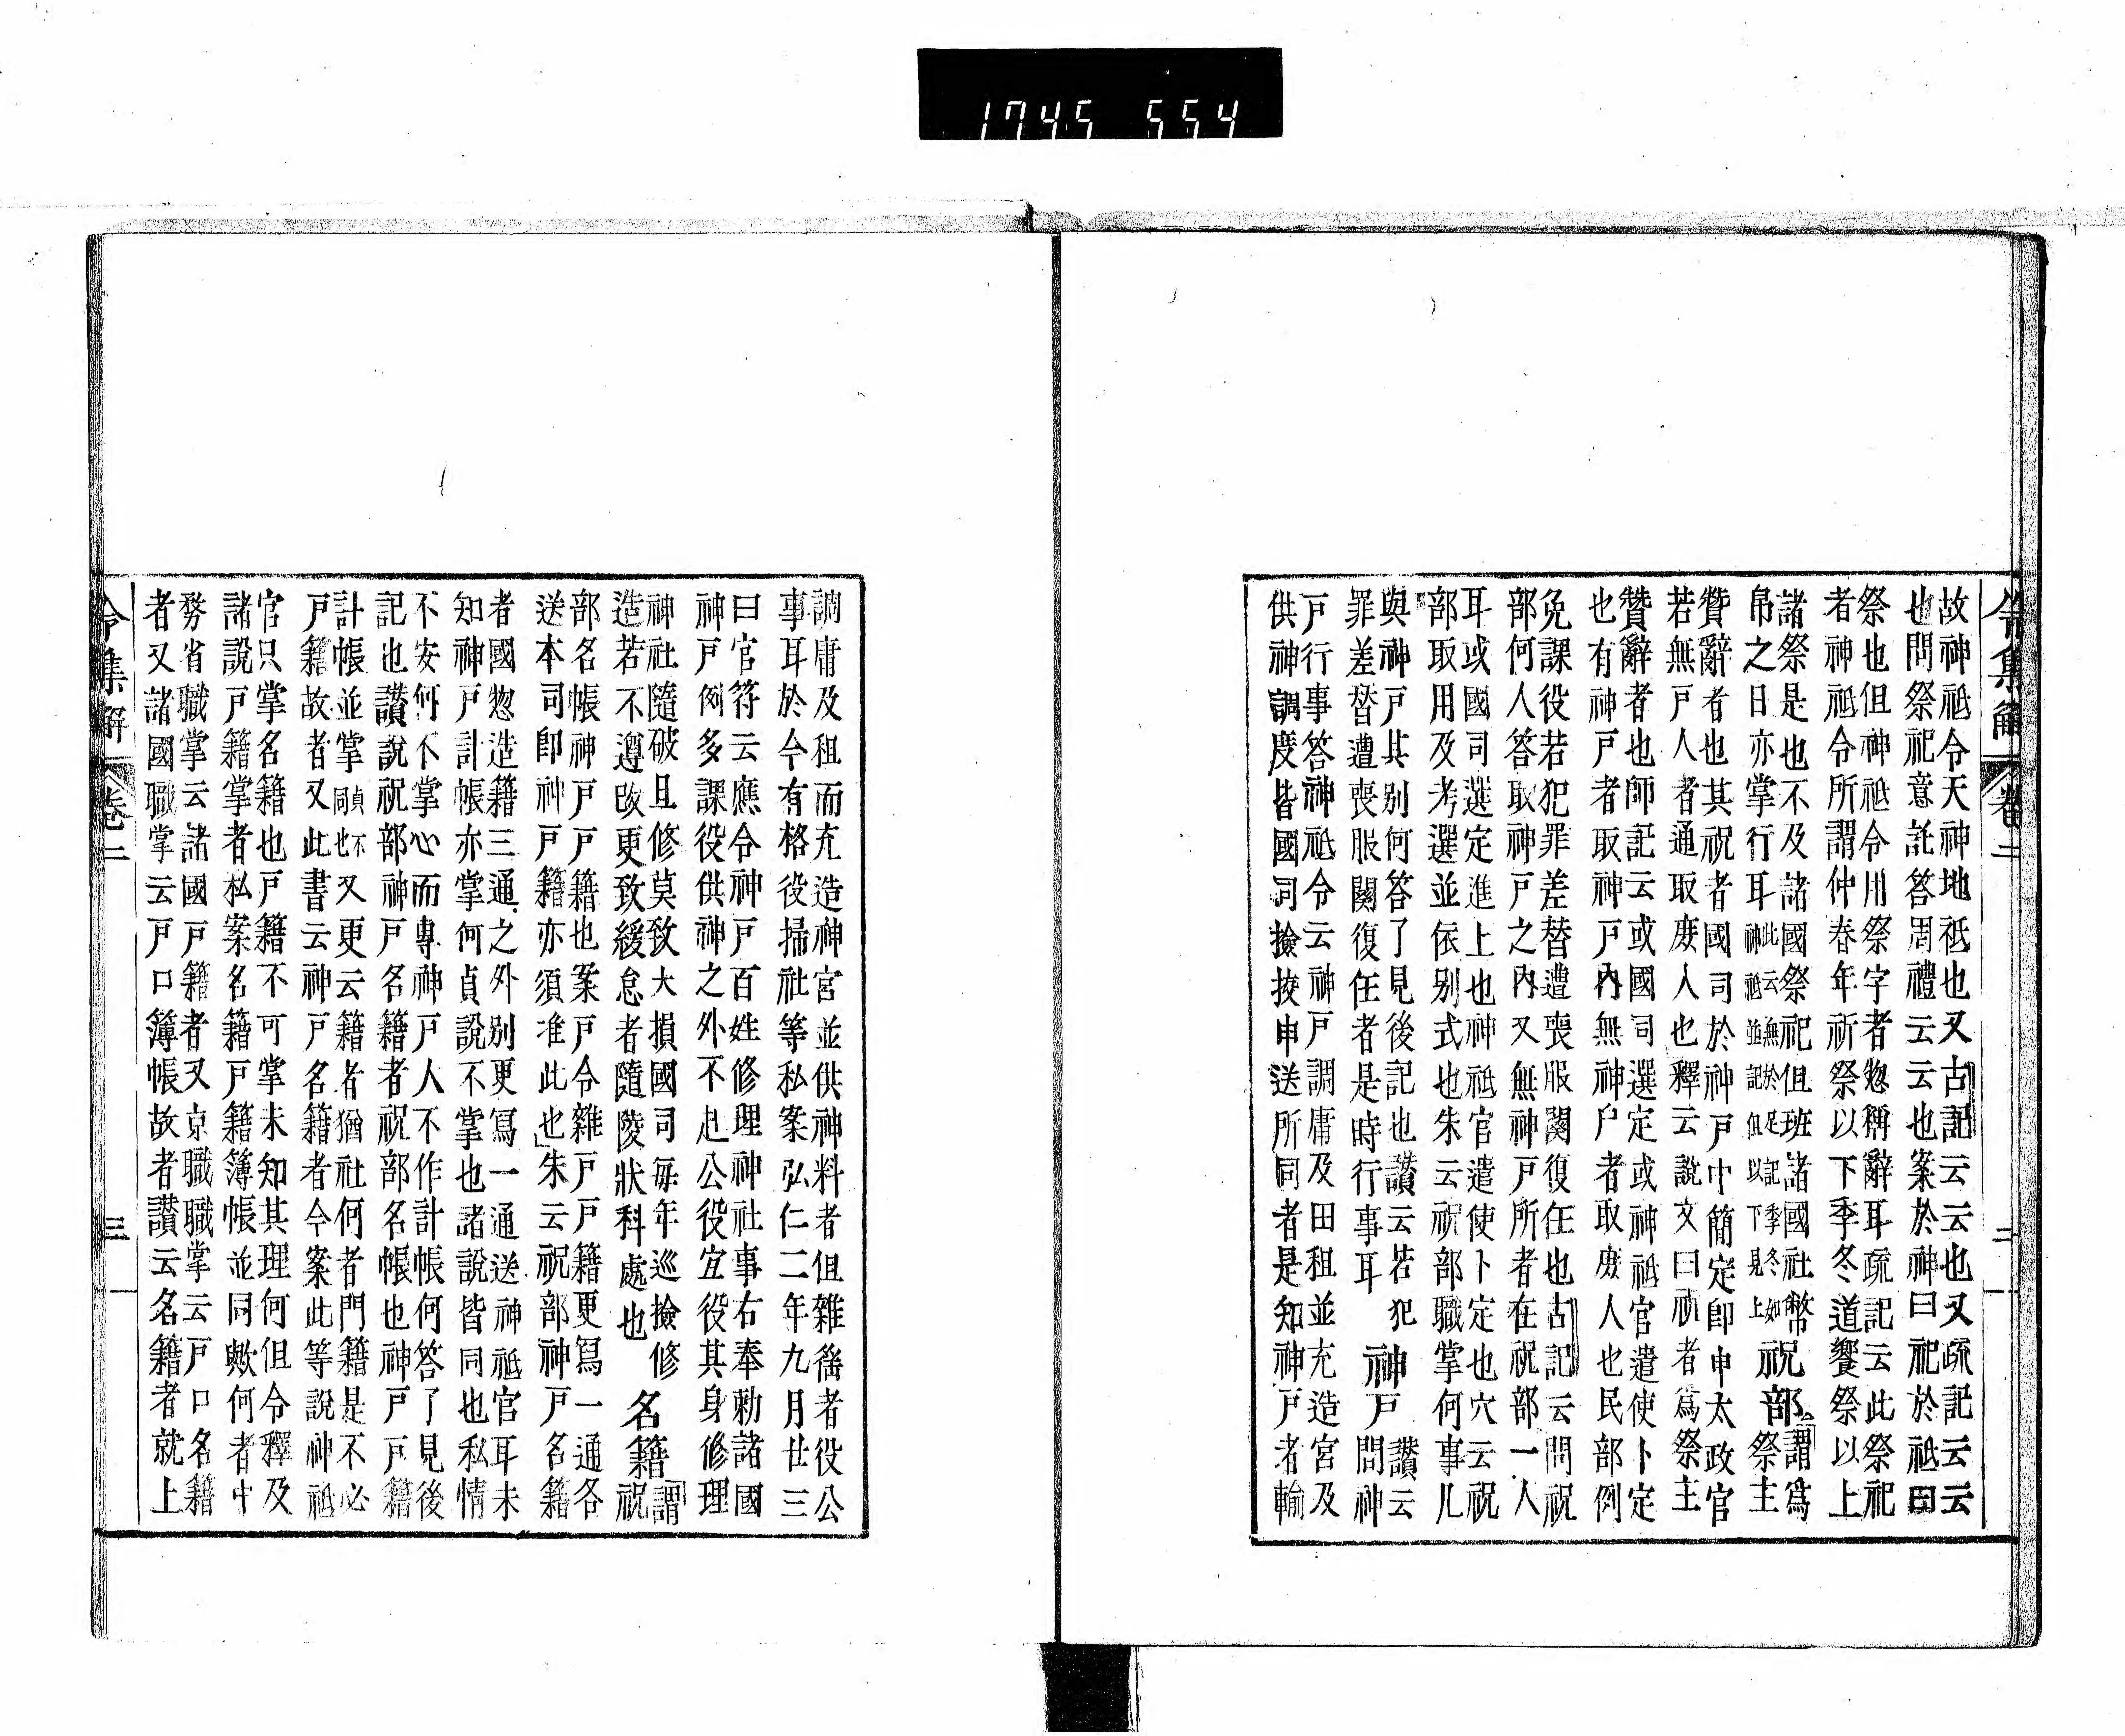 1745 554
令集解 卷二 二
故神祇令天神地祇也又古記云云也又疏記云云
也問祭祀意託答周禮云云也案於神曰祀於祇曰
祭也但神祇令用祭字者惣稱辭耳疏記云此祭祀
者神祇令所謂仲春年祈祭以下季冬道饗祭以上
諸祭是也不及諸國祭祀但班諸國社幣
帛之日亦掌行耳
此云無於是記季冬如
神祇並記但以下見上
祝部
謂為祭主
贊辭者也其祝者國司於神戸中簡定即申太政官
若無戸人者通取庶人也釋云說文曰祝者為祭主
贊辭者也師記云或國司選定或神祇官遣使卜定
也有神戸者取神戸內無神戸者取庶人也民部例
免課役若犯罪差替遭喪服闋復任也古記云問祝
部何人答取神戸之內又無神戸所者在祝部一人
耳或國司選定進上也神祇官遣使卜定也穴云祝
部取用及考選並依別式也朱云祝部職掌何事凡
與神戸其別何答了見後記也讚云若犯
罪差替遭喪服闋復任者是時行事耳
神戸
讚云
問神
戸行事答神祇令云神戸調庸及田租並充造宮及
供神調度皆國司撿挍申送所司者是知神戸者輸
調庸及租而充造神宮並供神料者但雜徭者役公
事耳於今有格役掃社等私案弘仁二年九月廿三
曰官符云應令神戸百姓修理神社事右奉勅諸國
神戸例多課役供神之外不赴公役宜役其身修理
神社隨破且修莫致大損國司每年巡撿修
造若不遵改更致緩怠者隨陵狀科處也
名籍
謂祝
部名帳神戸戸籍也案戸令雜戸戸籍更寫一通各
送本司即神戸籍亦須准此也朱云祝部神戸名籍
者國惣造籍三通之外別更寫一通送神祇官耳未
知神戸計帳亦掌何貞說不掌也諸說皆同也私情
不安何不掌心而專神戸人不作計帳何答了見後
記也讚說祝部神戸名籍者祝部名帳也神戸戸籍
計帳並掌
貞不
同也
又更云籍者猶社何者門籍是不必
戸籍故者又此書云神戸名籍者令案此等說神祇
官只掌名籍也戸籍不可掌未知其理何但令釋及
諸說戸籍掌者私案名籍戸籍簿帳並同歟何者中
務省職掌云諸國戸籍者又京職職掌云戸口名籍
者又諸國職掌云戸口簿帳故者讚云名籍者就上
令集解 卷二 三